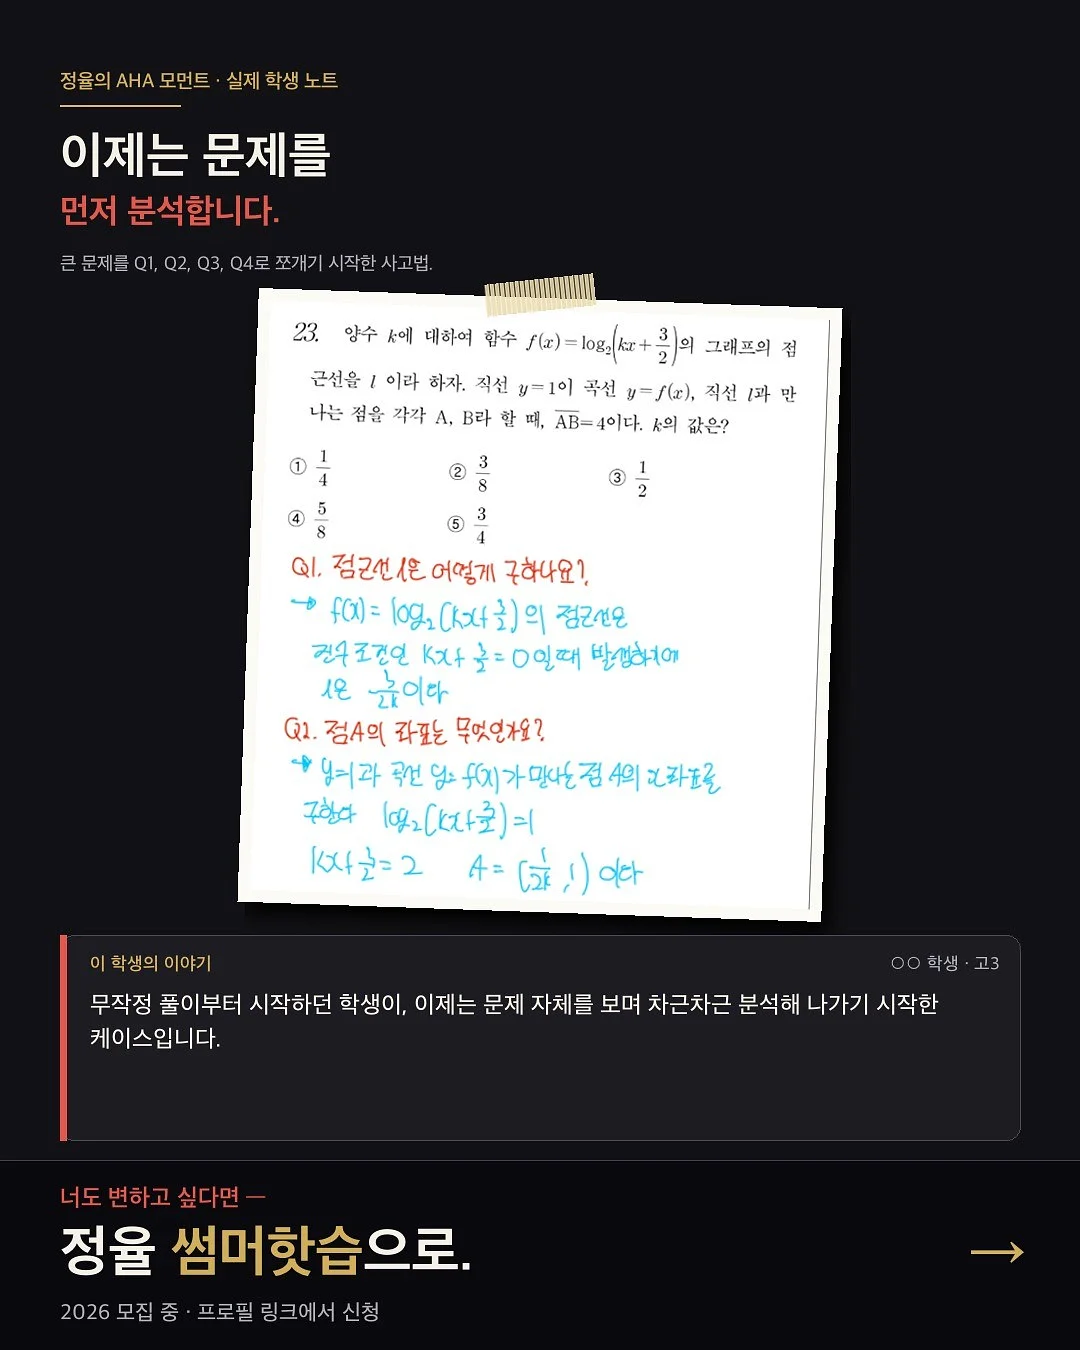 정율의 AHA 모먼트 · 실제 학생 노트
이제는 문제를
먼저 분석합니다.
큰 문제를 Q1, Q2, Q3, Q4로 쪼개기 시작한 사고법.
23. 양수 k에 대하여 함수 f(x)=log₂(kx+3/2)의 그래프의 점
근선을 l 이라 하자. 직선 y=1이 곡선 y=f(x), 직선 l과 만
나는 점을 각각 A, B라 할 때, AB=4이다. k의 값은?
① 1/4 ② 3/8 ③ 1/2
④ 5/8 ⑤ 3/4
Q1. 점근선 l은 어떻게 구하나요?
→ f(x)= log₂(kx+3/2)의 점근선은
진수조건인 kx+3/2=0일때 발생하기에
l은 -3/2k이다
Q2. 점A의 좌표는 무엇인가요?
→ y=1과 곡선 y=f(x)가 만나는 점 A의 x좌표를
구한다 log₂(kx+3/2)=1
kx+3/2=2 A=(1/2k,1)이다
이 학생의 이야기
○○ 학생 · 고3
무작정 풀이부터 시작하던 학생이, 이제는 문제 자체를 보며 차근차근 분석해 나가기 시작한
케이스입니다.
너도 변하고 싶다면 —
정율 썸머핫습으로.
→
2026 모집 중 · 프로필 링크에서 신청